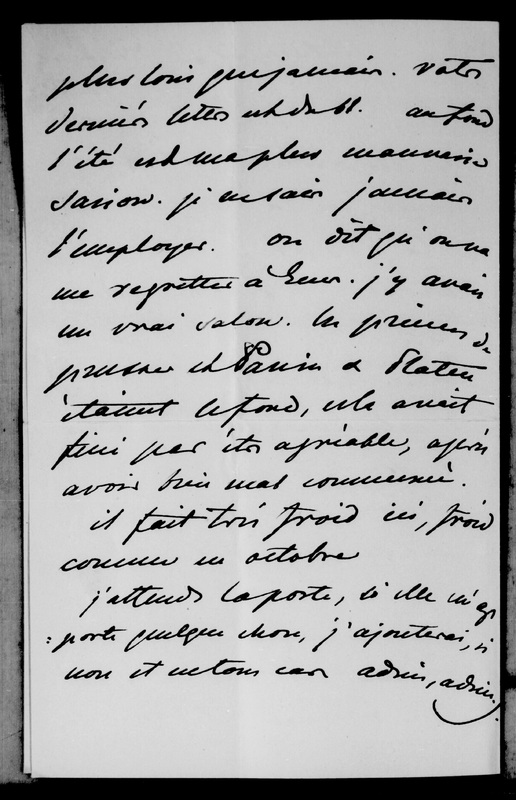 plus loin que jamais. votre
dernière lettre est du 61. au fond
l'été est ma plus mauvaise
saison. je ne sais jamais
l'employer. on dit qu'on va
me regretter à Ems. j'y avais
un vrai salon. les princes de
prusse et Panin & Platen
étaient le fond, cela avait
fini par être agréable, après
avoir bien mal commencé.
il fait très froid ici, froid
comme en octobre
j'attends la poste, si elle m'ap
: porte quelque chose, j'ajouterai, si
non et en tous cas adieu, adieu.